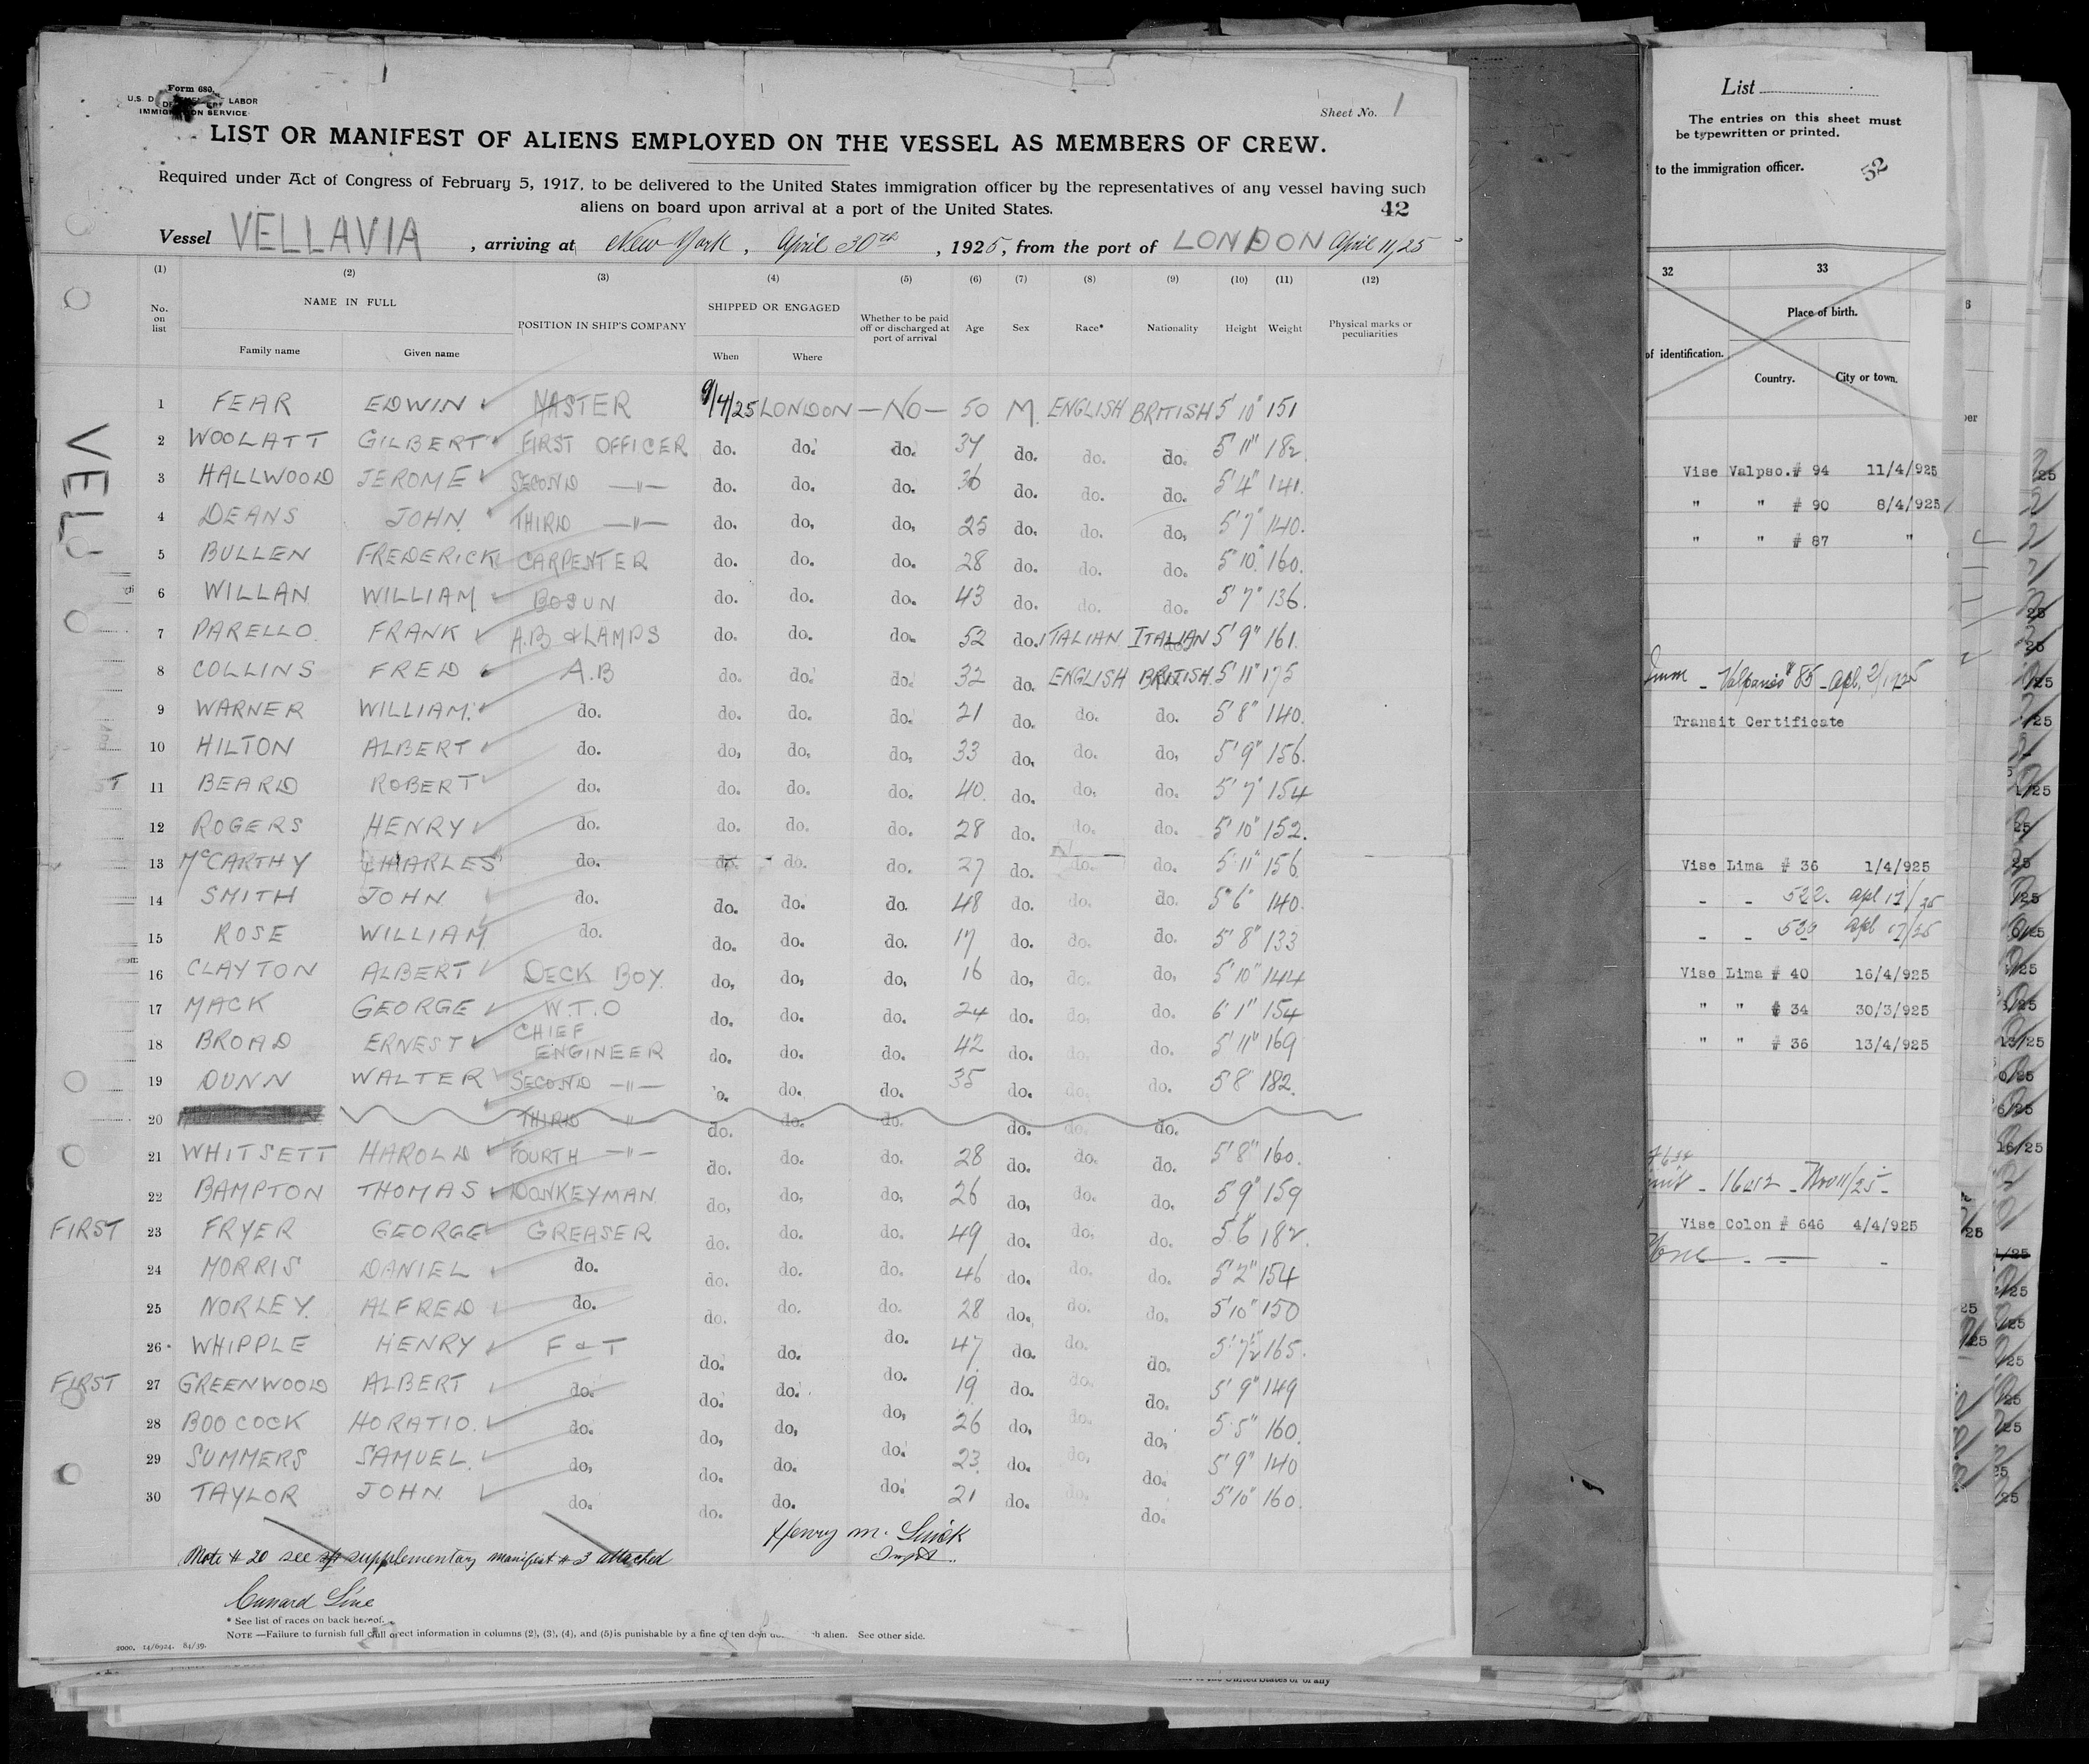 Form 680.
U.S. D LABOR
IMMIGRATION SERVICE
Sheet No. 1
LIST OR MANIFEST OF ALIENS EMPLOYED ON THE VESSEL AS MEMBERS OF CREW.
Required under Act of Congress of February 5, 1917, to be delivered to the United States immigration officer by the representatives of any vessel having such
aliens on board upon arrival at a port of the United States.
42
Vessel VELLAVIA, arriving at New York, April 30th, 1925, from the port of LONDON April 11/25
(1) (2) (3) (4) (5) (6) (7) (8) (9) (10) (11) (12)
No. on list NAME IN FULL POSITION IN SHIP'S COMPANY SHIPPED OR ENGAGED Whether to be paid off or discharged at port of arrival Age Sex Race* Nationality Height Weight Physical marks or peculiarities
Family name Given name When Where
1 FEAR EDWIN MASTER 9/4/25 LONDON —NO— 50 M. ENGLISH BRITISH 5' 10" 151
2 WOOLATT GILBERT FIRST OFFICER do. do. do. 37 do. do. do. 5' 11" 182
3 HALLWOOD JEROME SECOND —"— do. do. do. 36 do. do. do. 5' 4" 141.
4 DEANS JOHN. THIRD —"— do. do. do. 25 do. do. do. 5' 7" 140.
5 BULLEN FREDERICK CARPENTER do. do. do. 28 do. do. do. 5' 10" 160.
6 WILLAN WILLIAM BOSUN do. do. do. 43 do. do. do. 5' 7" 136.
7 PARELLO. FRANK A.B & LAMPS do. do. do. 52 do. ITALIAN ITALIAN 5' 9" 161.
8 COLLINS FRED A.B do. do. do. 32 do. ENGLISH BRITISH. 5' 11" 175
9 WARNER WILLIAM. do. do. do. do. 21 do. do. do. 5' 8" 140.
10 HILTON ALBERT do. do. do. do. 33 do. do. do. 5' 9" 156.
11 BEARD ROBERT do. do. do. do. 40. do. do. do. 5' 7" 154
12 ROGERS HENRY do. do. do. do. 28 do. do. do. 5' 10" 152.
13 McCARTHY CHARLES do. do. do. do. 27 do. do. do. 5' 11" 156.
14 SMITH JOHN do. do. do. do. 48 do. do. do. 5' 6" 140.
15 ROSE WILLIAM do. do. do. do. 17 do. do. do. 5' 8" 133
16 CLAYTON ALBERT DECK BOY. do. do. do. 16 do. do. do. 5' 10" 144
17 MACK GEORGE W.T.O do. do. do. 24 do. do. do. 6' 1" 154
18 BROAD ERNEST CHIEF ENGINEER do. do. do. 42 do. do. do. 5' 11" 169
19 DUNN WALTER SECOND —"— do. do. do. 35 do. do. do. 5' 8" 182.
20 THIRD —"— do. do. do. do. do. do.
21 WHITSETT HAROLD FOURTH —"— do. do. do. 28 do. do. do. 5' 8" 160.
22 BAMPTON THOMAS DONKEYMAN do. do. do. 26 do. do. do. 5' 9" 159
FIRST 23 FRYER GEORGE GREASER do. do. do. 49 do. do. do. 5' 6" 182.
24 MORRIS DANIEL do. do. do. do. 46 do. do. do. 5' 2" 154
25 NORLEY. ALFRED do. do. do. do. 28 do. do. do. 5' 10" 150
26 WHIPPLE HENRY F & T do. do. do. 47 do. do. do. 5' 7½" 165.
FIRST 27 GREENWOOD ALBERT do. do. do. do. 19 do. do. do. 5' 9" 149
28 BOOCOCK HORATIO. do. do. do. do. 26 do. do. do. 5' 5" 160.
29 SUMMERS SAMUEL. do. do. do. do. 23. do. do. do. 5' 9" 140
30 TAYLOR JOHN do. do. do. do. 21 do. do. do. 5' 10" 160.
Henry M.
Note # 20 see supplementary manifest # 3 attached
Cunard Line
* See list of races on back hereof.
NOTE —Failure to furnish full orect information in columns (2), (3), (4), and (5) is punishable by a fine of ten alien. See other side.
2000. 14/6924. 84/39.
List
The entries on this sheet must
be typewritten or printed.
to the immigration officer.
52
32 33
Place of birth.
of identification.
Country. City or town.
Vise Valpso.# 94 11/4/925
" " # 90 8/4/925
" " # 87 "
Transit Certificate
Vise Lima # 36 1/4/925
- - 522. apl 17/25
- - 530 apl 17/25
Vise Lima # 40 16/4/925
" " # 34 30/3/925
" " # 36 13/4/925
Vise Colon # 646 4/4/925